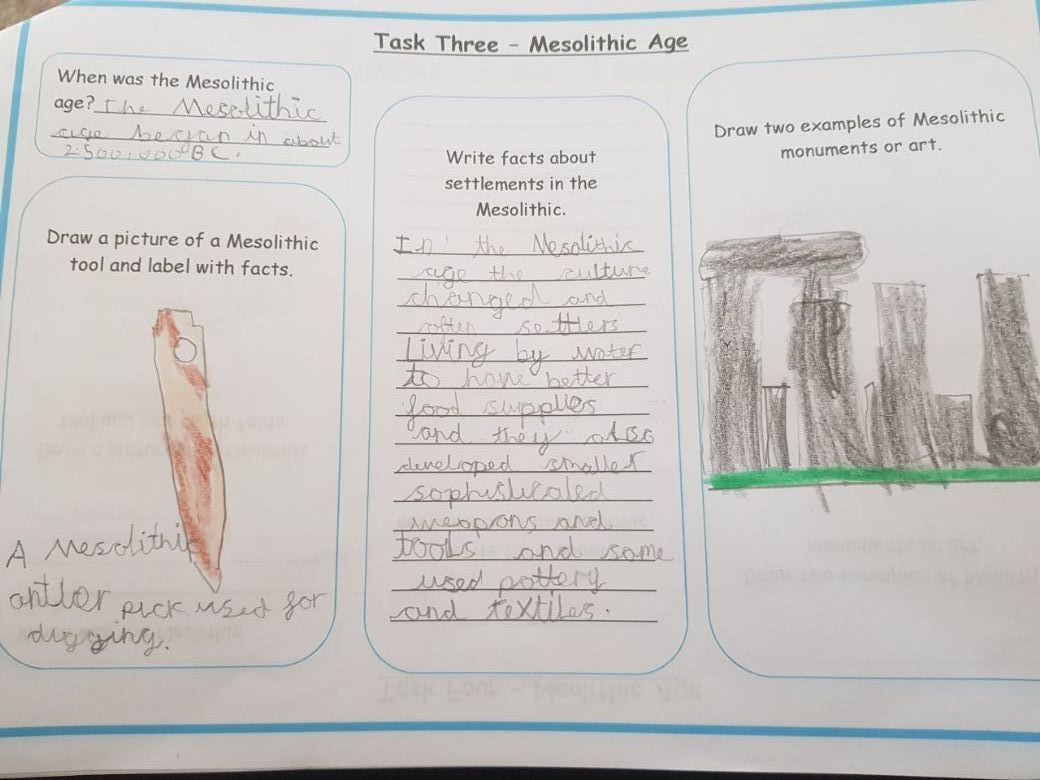 Task Three - Mesolithic Age
When was the Mesolithic
age? The Mesolithic
age began in about
2,500,000 BC.
Draw a picture of a Mesolithic
tool and label with facts.
A Mesolithic
antler pick used for
digging.
Write facts about
settlements in the
Mesolithic.
In the Mesolithic
age the culture
changed and
often settlers
Living by water
to have better
food supplies
and they also
developed smaller
sophisticated
weapons and
tools and some
used pottery
and textiles.
Draw two examples of Mesolithic
monuments or art.